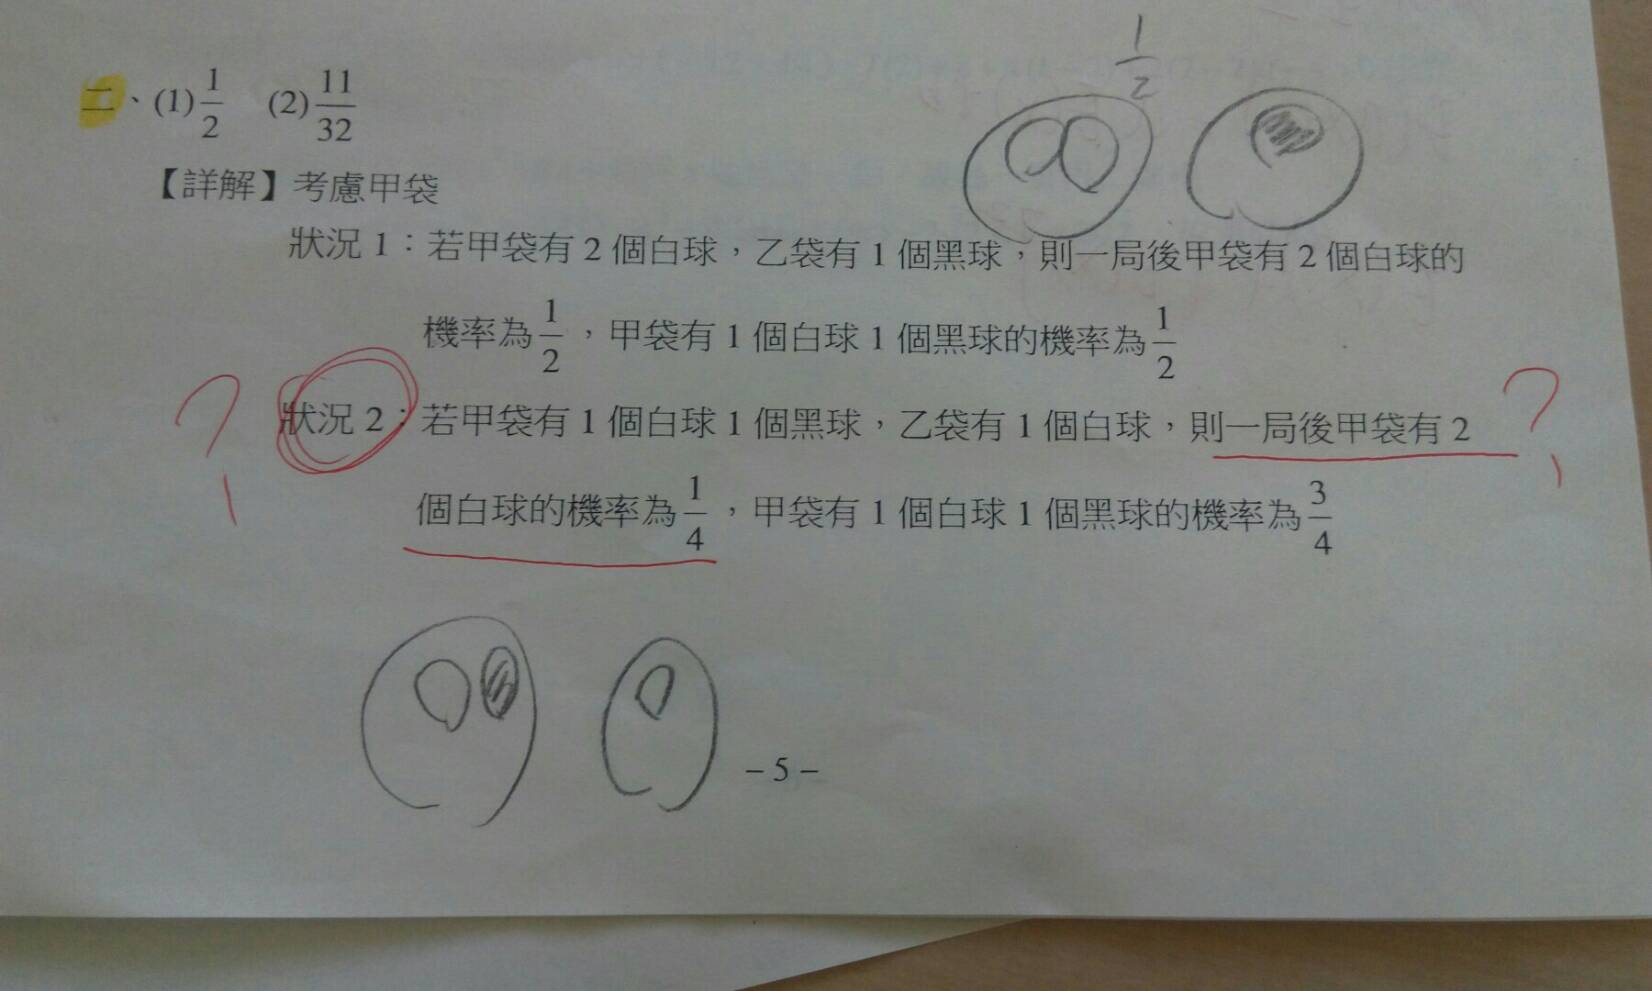 1/2
二、(1) 1/2 (2) 11/32
【詳解】考慮甲袋
狀況 1：若甲袋有 2 個白球，乙袋有 1 個黑球，則一局後甲袋有 2 個白球的
機率為 1/2，甲袋有 1 個白球 1 個黑球的機率為 1/2
? 狀況 2：若甲袋有 1 個白球 1 個黑球，乙袋有 1 個白球，則一局後甲袋有 2 ?
個白球的機率為 1/4，甲袋有 1 個白球 1 個黑球的機率為 3/4
－5－